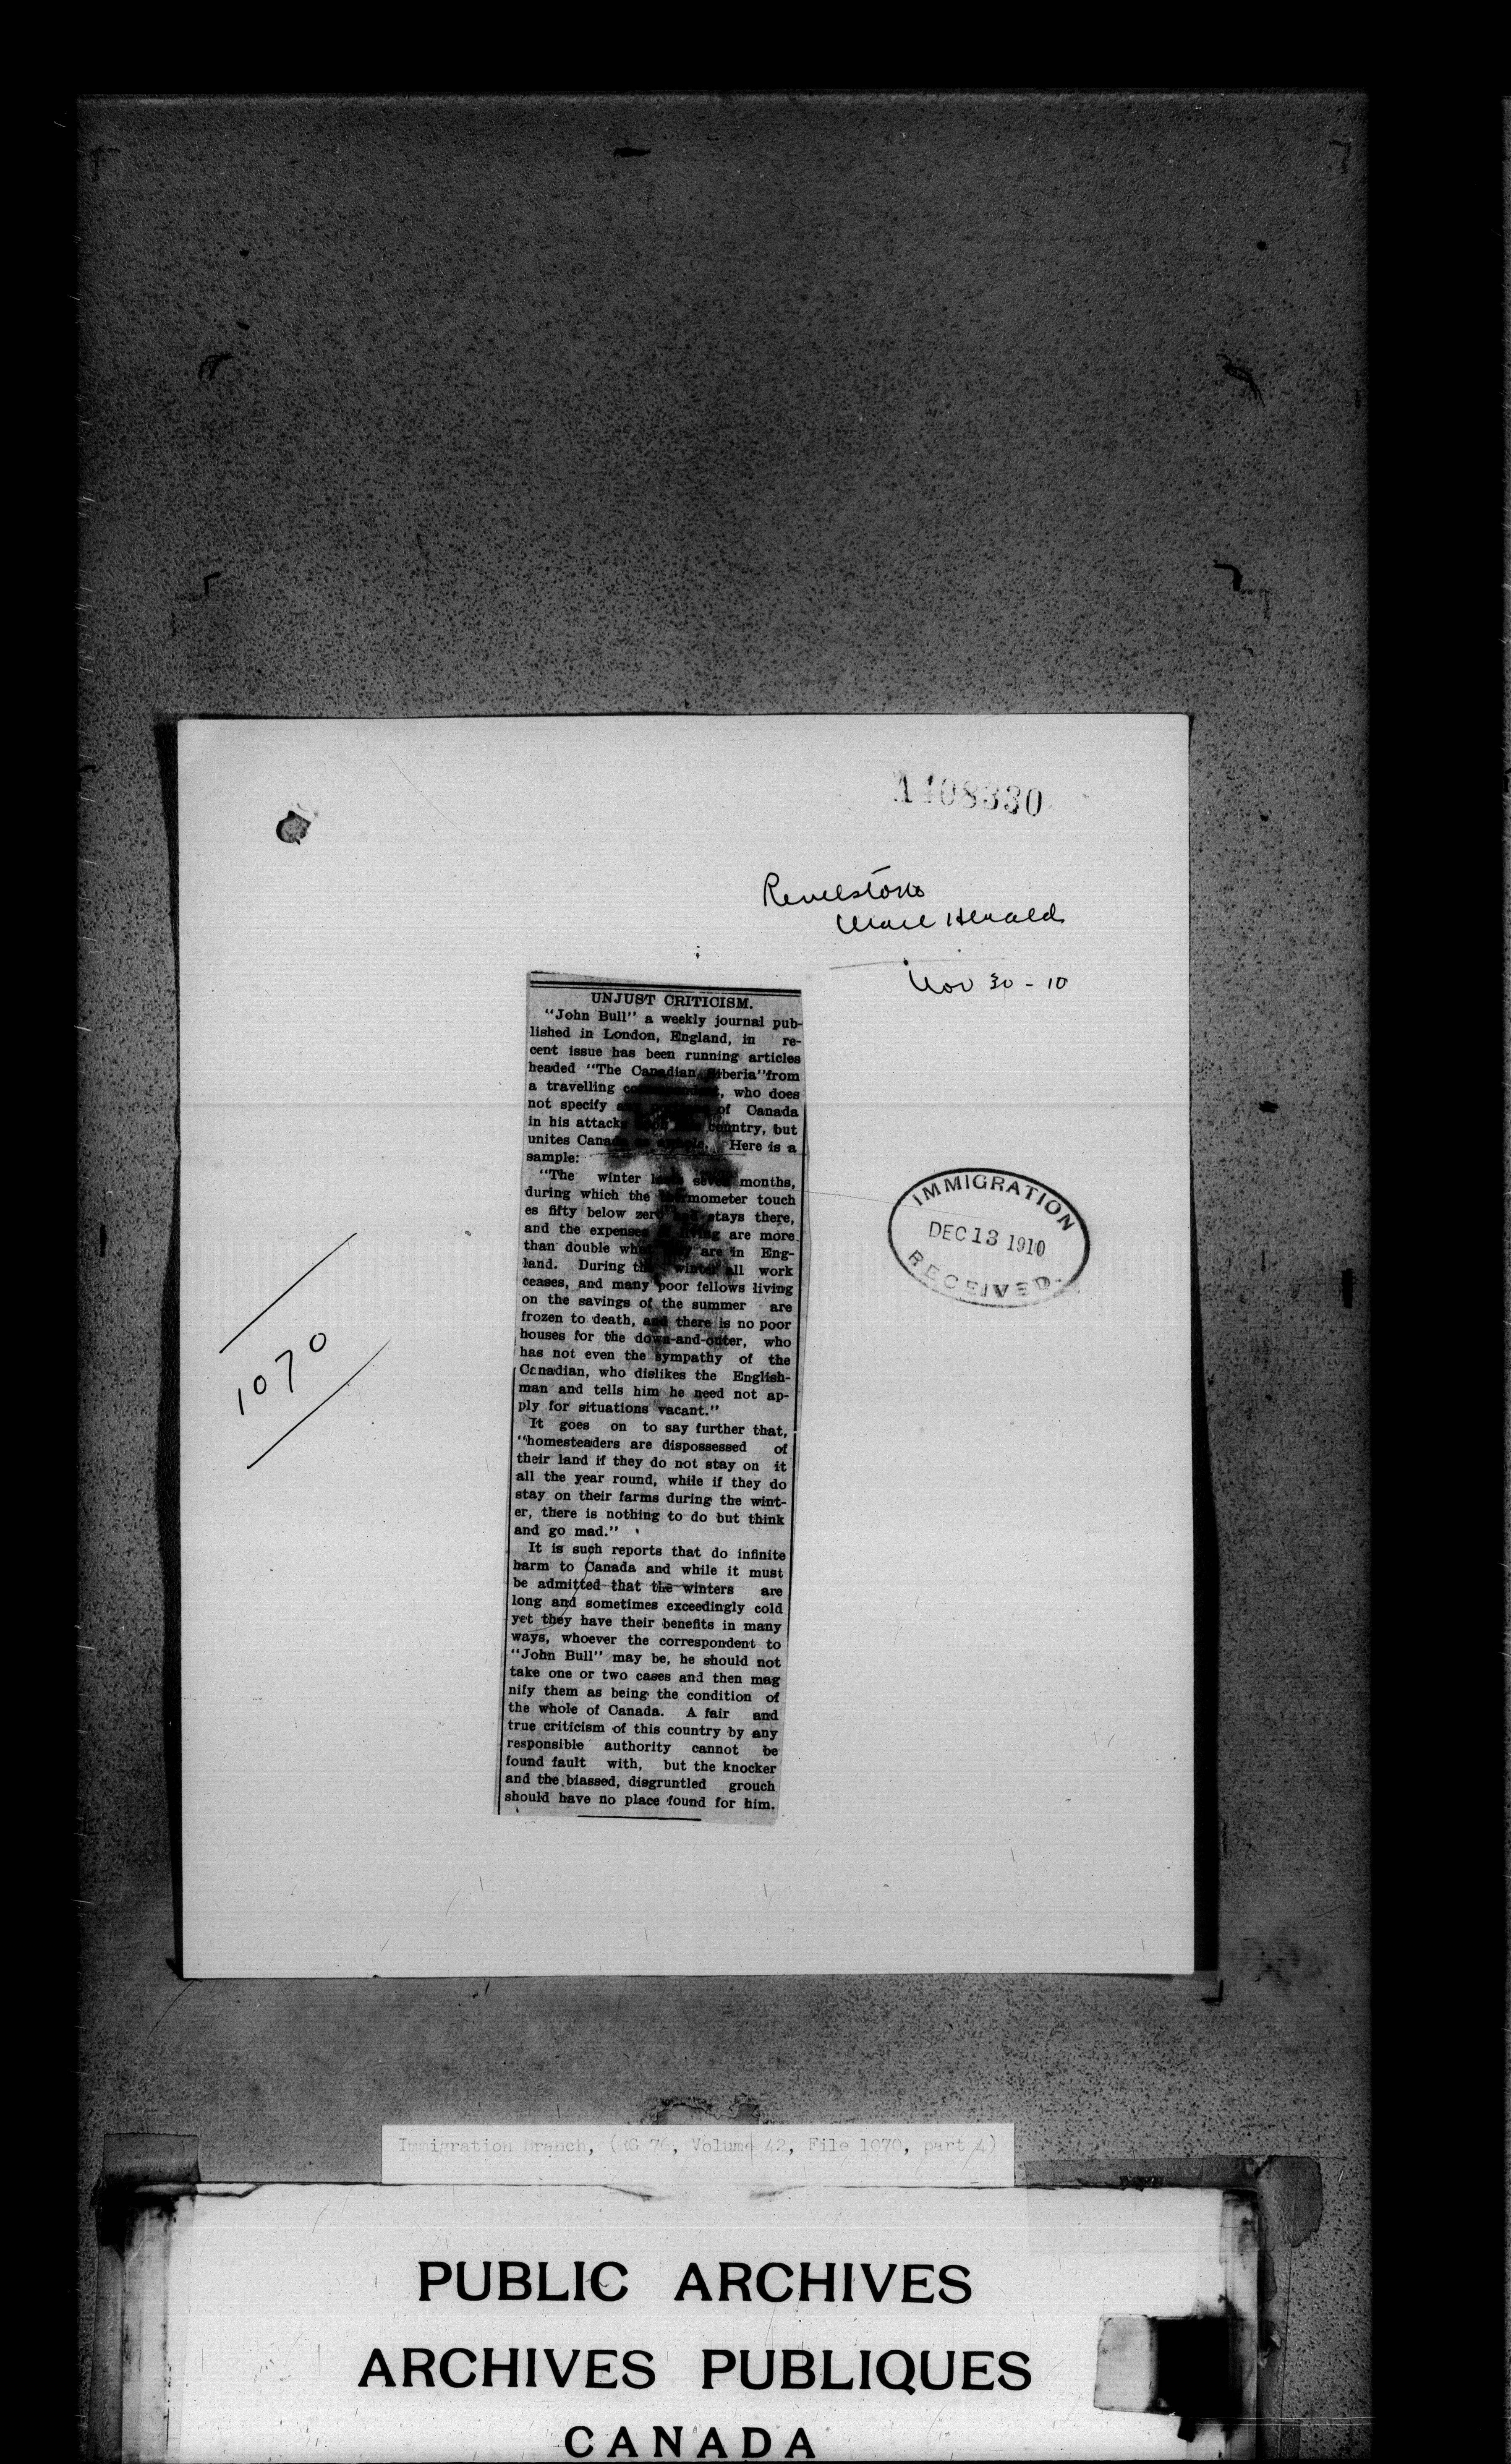 1408330
Revelstoke
Mail Herald
Nov 30 - 10
UNJUST CRITICISM.
"John Bull" a weekly journal pub-
lished in London, England, in re-
cent issue has been running articles
headed "The Canadian Siberia" from
a travelling correspondent, who does
not specify of Canada
in his attacks country, but
unites Canada as a whole. Here is a
sample:
"The winter seven months,
during which the thermometer touch
es fifty below zero and stays there,
and the expenses of living are more
than double what they are in Eng-
land. During the winter all work
ceases, and many poor fellows living
on the savings of the summer are
frozen to death, and there is no poor
houses for the down-and-outer, who
has not even the sympathy of the
Canadian, who dislikes the English-
man and tells him he need not ap-
ply for situations vacant."
It goes on to say further that,
"homesteaders are dispossessed of
their land if they do not stay on it
all the year round, while if they do
stay on their farms during the wint-
er, there is nothing to do but think
and go mad."
It is such reports that do infinite
harm to Canada and while it must
be admitted that the winters are
long and sometimes exceedingly cold
yet they have their benefits in many
ways, whoever the correspondent to
"John Bull" may be, he should not
take one or two cases and then mag
nify them as being the condition of
the whole of Canada. A fair and
true criticism of this country by any
responsible authority cannot be
found fault with, but the knocker
and the biassed, disgruntled grouch
should have no place found for him.
IMMIGRATION
DEC 13 1910
RECEIVED
1070
Immigration Branch, (RG 76, Volume 42, File 1070, part 4)
PUBLIC ARCHIVES
ARCHIVES PUBLIQUES
CANADA